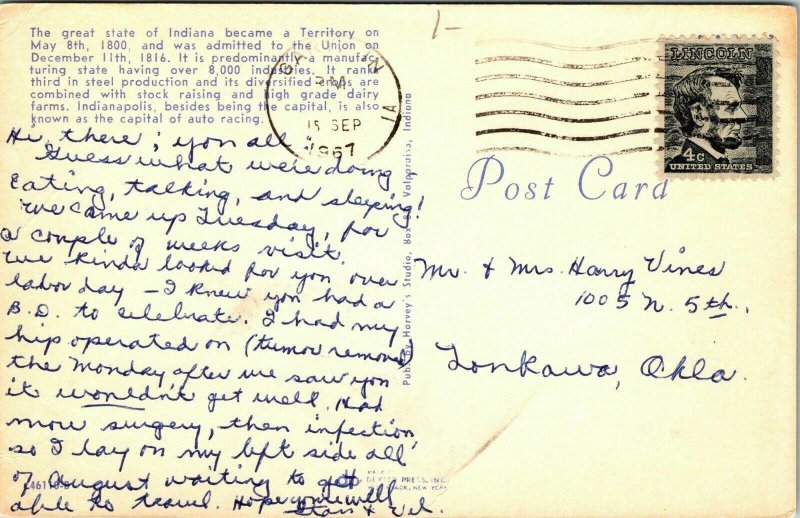 The great state of Indiana became a Territory on
May 8th, 1800, and was admitted to the Union on
December 11th, 1816. It is predominantly a manufac-
turing state having over 8,000 industries. It ranks
third in steel production and its diversified crops are
combined with stock raising and high grade dairy
farms. Indianapolis, besides being the capital, is also
known as the capital of auto racing.
1-
PM
15 SEP
1967
LINCOLN
4c
UNITED STATES
Post Card
Hi, there; you all
Guess what we're doing
Eating, talking, and sleeping!
We came up Tuesday, for
a couple of weeks visit.
We kinda looked for you over
labor day - I knew you had a
B.D. to celebrate. I had my
hip operated on (tumor removed)
the Monday after we saw you
it wouldn't get well. Had
more surgery, then infection,
so I lay on my left side all
of August waiting to get
able to travel. Hope come well
&
Pub. by Harvey's Studio, Box 83, Valparaiso, Indiana
Mr. & Mrs. Harry Vines
1005 N. 5th.,
Tonkawa, Okla.
PRESS, INC.
NEW YORK